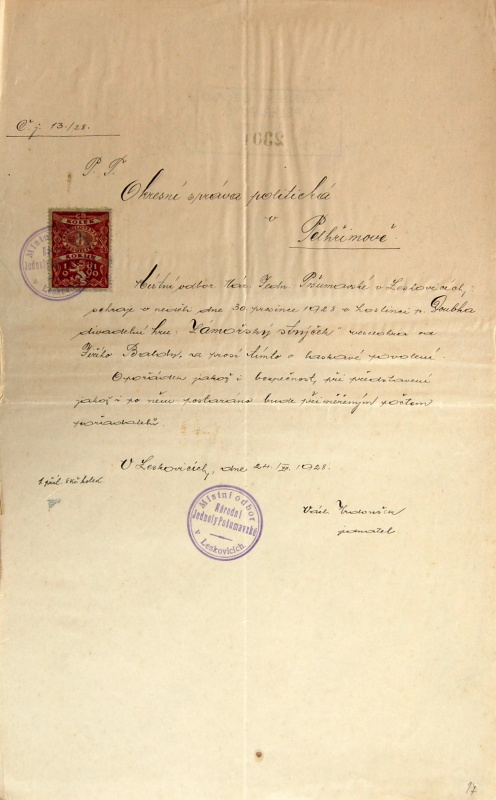 Č. j. 13./28.
P. T.
Okresní správa politická
v
Pelhřimově.
KOLEK
KORUN
Místní odbor Nár. Jedn. Pošumavské v Leskovicích,
sehraje v neděli dne 30. prosince 1928 v hostinci p. Doubka
divadelní hru: "Zamořský strýček" veselohra na
Jiřího Baldy, za prosí tímto o laskavé povolení.
O pořádek jakož i bezpečnost, při představení
jakož i po něm postaráno bude přiměřeným počtem
pořadatelů
V Leskovicích, dne 24. XII. 1928.
Místní odbor
Národní
Jednoty Pošumavské
v Leskovicích
jednatel
97